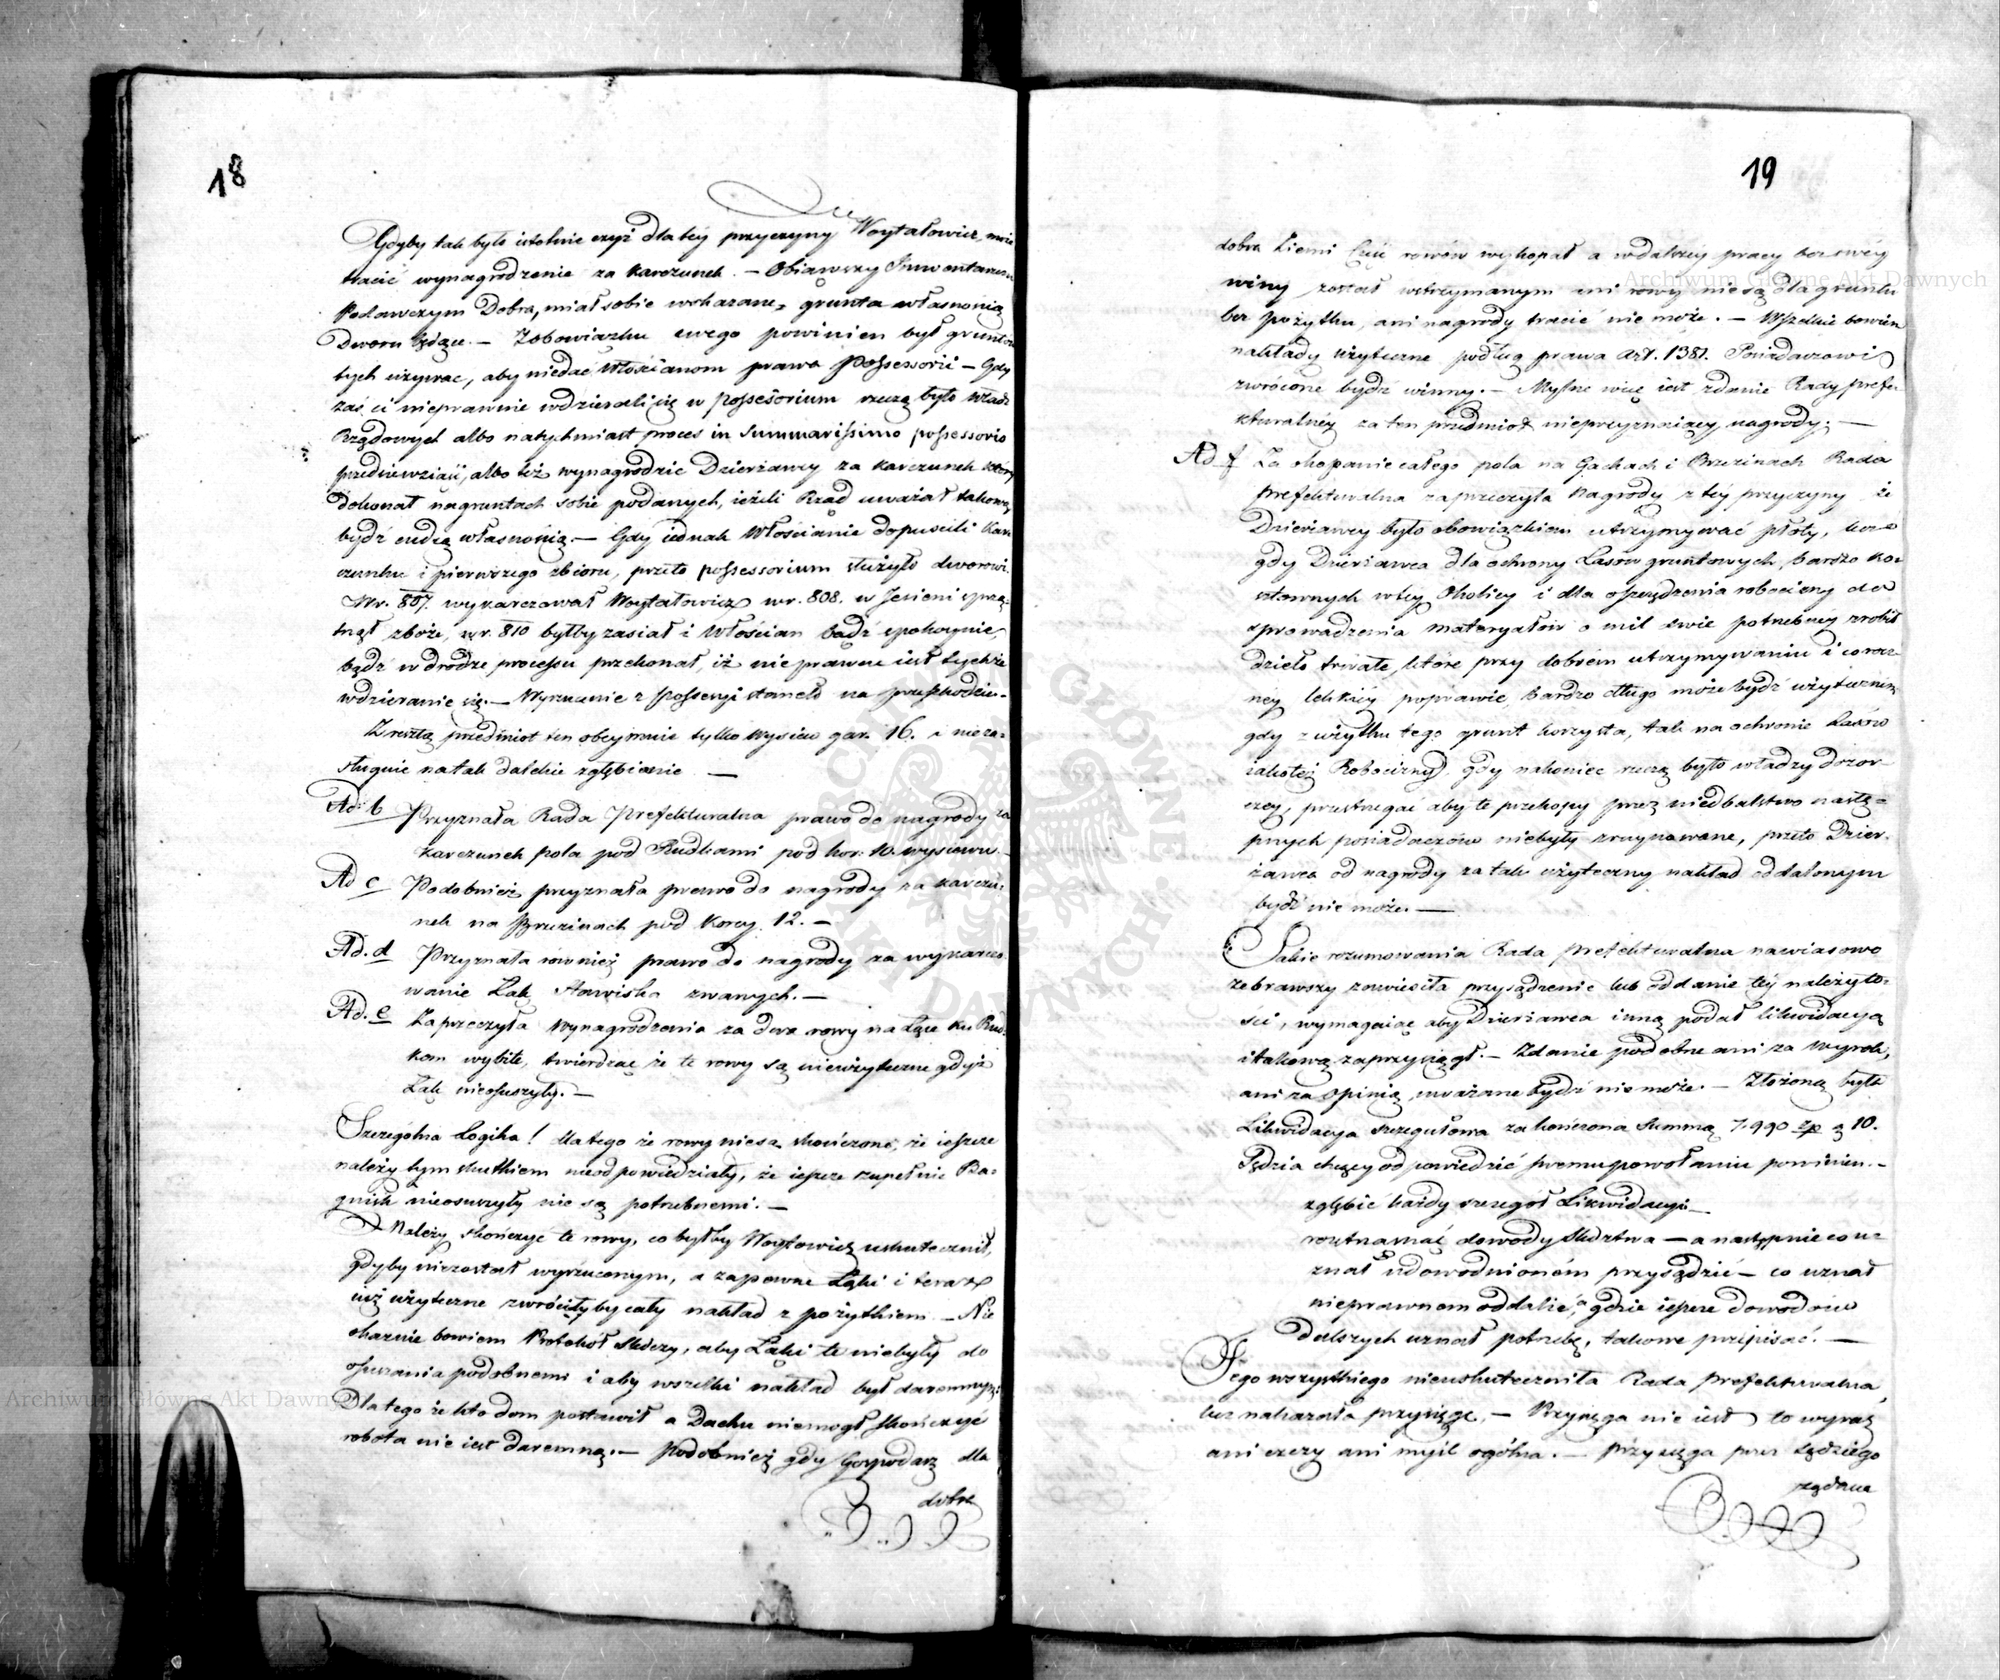 18
Gdyby tak było istotnie czyż dla tey przyczyny Woytałowicz może
tracić wynagrodzenie za karczunek. — Obiąwszy Inwentarzem
Podawczym Dobra, miał sobie wskazane, grunta własnością
Dworu będące. — Z obowiązku swego powinien był gruntów
tych używać, aby niedać Włościanom prawa Possessorii — Gdy
zaś ci nieprawnie wdzierali się w possessorium rzeczą było Władz
Rządowych albo natychmiast proces in Summarissimo possessorio
przedsiewziąść, albo też wynagrodzić Dzierżawcy za karczunek który
dokonał na gruntach sobie podanych, ieżeli Rząd uważał takowe
bydź cudzą własnością. — Gdy iednak Włościanie dopuścili Kar-
czunku i pierwszego zbioru, przeto possessorium służyło dworowi.
Wr. 807. wykarczował Woytałowicz wr. 808. w Jesieni sprzą-
tnął zboże, wr. 810 byłby zasiał i Włościan bądź spokoynie,
bądź w drodze processu przekonał, iż nieprawne iest tychże
wdzieranie się. — Wyrzucenie z possessyi stanęło na przeszkodzie. —
Zresztą przedmiot ten obeymuie tylko wysiew gar. 16. i nieza-
sługuie na tak dalekie zgłębianie —
Ad. b Przyznała Rada Prefekturalna prawo do nagrody za
karczunek pola pod Rudkami pod kor: 10. wysiewu. —
Ad c Podobnież przyznała prawo do nagrody za karczu-
nek na Brzezinach pod Korcy 12. —
Ad. d Przyznała również prawo do nagrody za wykarczo-
wanie Łąk Stawiska zwanych. —
Ad. e Zaprzeczyła wynagrodzenia za dwa rowy na Łące ku Rud-
kom wybite, twierdząc że te rowy są nieużyteczne gdyż
Łąk nieosuszyły. —
Szczególna Logika! dlatego że rowy niesą skończone, że ieszcze
należytym skutkiem nieodpowiedziały, że ieszcze zupełnie Ba-
gnisk nieosuszyły nie są potrzebnemi. —
Należy skończyć te rowy, co byłby Woytowicz uskutecznił,
gdyby niezostał wyrzuconym, a zapewne Łąki i teraz
iuż użyteczne zwróciłyby cały nakład z pożytkiem. — Nie
okazuie bowiem Protokół Śledczy, aby Łąki te niebyły do
osuszania podobnemi i aby wszelki nakład był daremny
Dlatego że kto dom postawił a Dachu niemógł skończyć
robota nie iest daremną. — Podobnież gdy Gospodarz dla
dobra
19
dobra Ziemi Część rowów wykopał a w dalszey pracy bez swéy
winy został wstrzymanym ani rowy niesą dla gruntu
bez pożytku, ani nagrody tracić nie może. — Wszelkie bowiem
nakłady użyteczne podług prawa art. 1381. Posiadaczowi
zwrócone bydź winny. — Mylne więc iest zdanie Rady prefe-
kturalnéy za ten przedmiot nieprzyznaiącey nagrody. —
Ad f Za okopanie całego pola na Gachach i Brzezinach Rada
prefekturalna zaprzeczyła Nagrody z tey przyczyny że
Dzierżawcy było obowiązkiem utrzymywać płoty, lecz
gdy Dzierżawca dla ochrony Lasów gruntowych, bardzo ko-
sztownych w tey Okolicy i dla oszczędzenia robocizny do
sprowadzenia materyałów o mil dwie potrzebney zrobił
dzieło trwałe, które przy dobrem utrzymywaniu i coroc-
zney lekkiéy poprawie bardzo długo może bydź użytecznem
gdy z użytku tego grunt korzysta, tak na ochronie Lasów
iakoteż Robocizny, gdy nakoniec rzeczą było władzy dozor-
czey, przestrzegać aby te przekopy przez niedbalstwo nastę-
pnych posiadaczów niebyły zruynowane, przeto Dzier-
żawca od nagrody za tak użyteczny nakład oddalonym
bydź nie może. —
Takie rozumowania Rada prefekturalna nawiasowo
zebrawszy zawiesiła przysądzenie lub oddanie téy należyto-
ści, wymagaiąc aby Dzierżawca inną podał likwidacyą
i takową zaprzysiągł. — Zdanie podobne ani za wyrok,
ani za opinią uważane bydź nie może. — Złożona była
Likwidacya szczegułowa zakończona Summą 7.990 zp g 10.
Sędzia chcący odpowiedzieć swemu powołaniu powinien. —
zgłębić każdy szczegoł Likwidacyi —
roztrząsnąć dowody Śledztwa — a następnie co u-
znał udowodnioném przysądzić — co uznał
nieprawnem oddalić, a gdzie ieszcze dowodów
dalszych uznał potrzebę, takowe przepisać. —
Tego wszystkiego nieuskuteczniła Rada prefekturalna
lecz nakazała przysięgę. — Przysięga nie iest to wyraz
ani czczy ani myśl ogólna. — Przysięga przez Sędziego
żądana